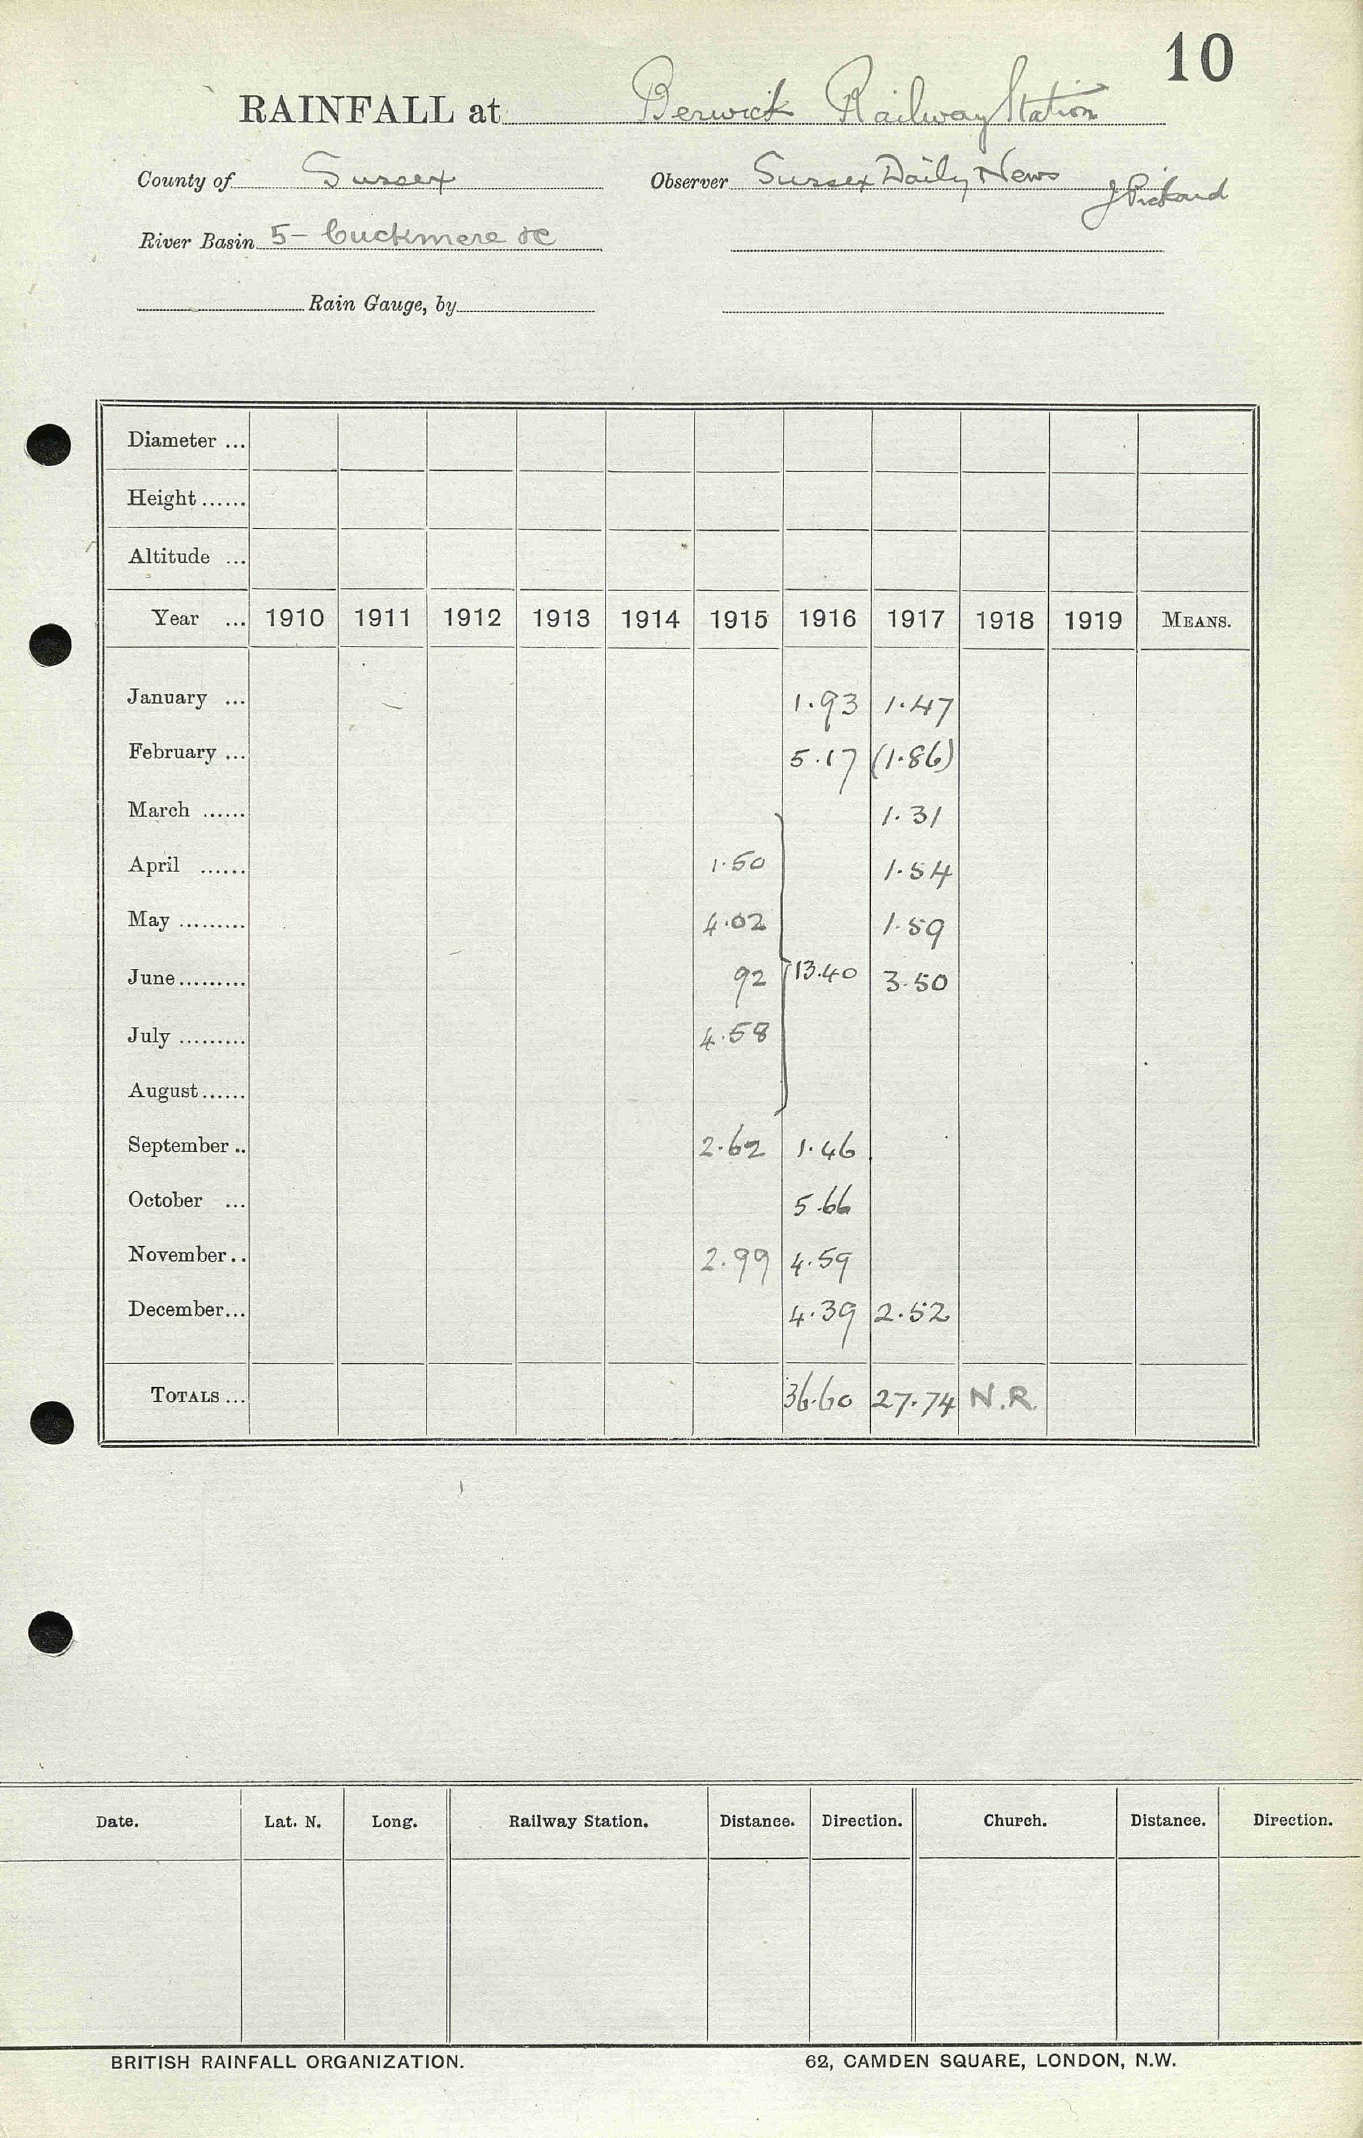 10
RAINFALL at Berwick Railway Station
County of Sussex Observer Sussex Daily News J Pickard
River Basin 5- Cuckmere &c
Rain Gauge, by
Diameter ...
Height ......
Altitude ...
Year ... 1910 1911 1912 1913 1914 1915 1916 1917 1918 1919 MEANS.
January ... 1.93 1.47
February ... 5.17 (1.86)
March ...... 1.31
April ...... 1.50 1.54
May ......... 4.02 1.59
June ......... 92 13.40 3.50
July ......... 4.58
August ......
September .. 2.62 1.46
October ... 5.66
November .. 2.99 4.59
December ... 4.39 2.52
TOTALS ... 36.60 27.74 N.R.
Date. Lat. N. Long. Railway Station. Distance. Direction. Church. Distance. Direction.
BRITISH RAINFALL ORGANIZATION. 62, CAMDEN SQUARE, LONDON, N.W.